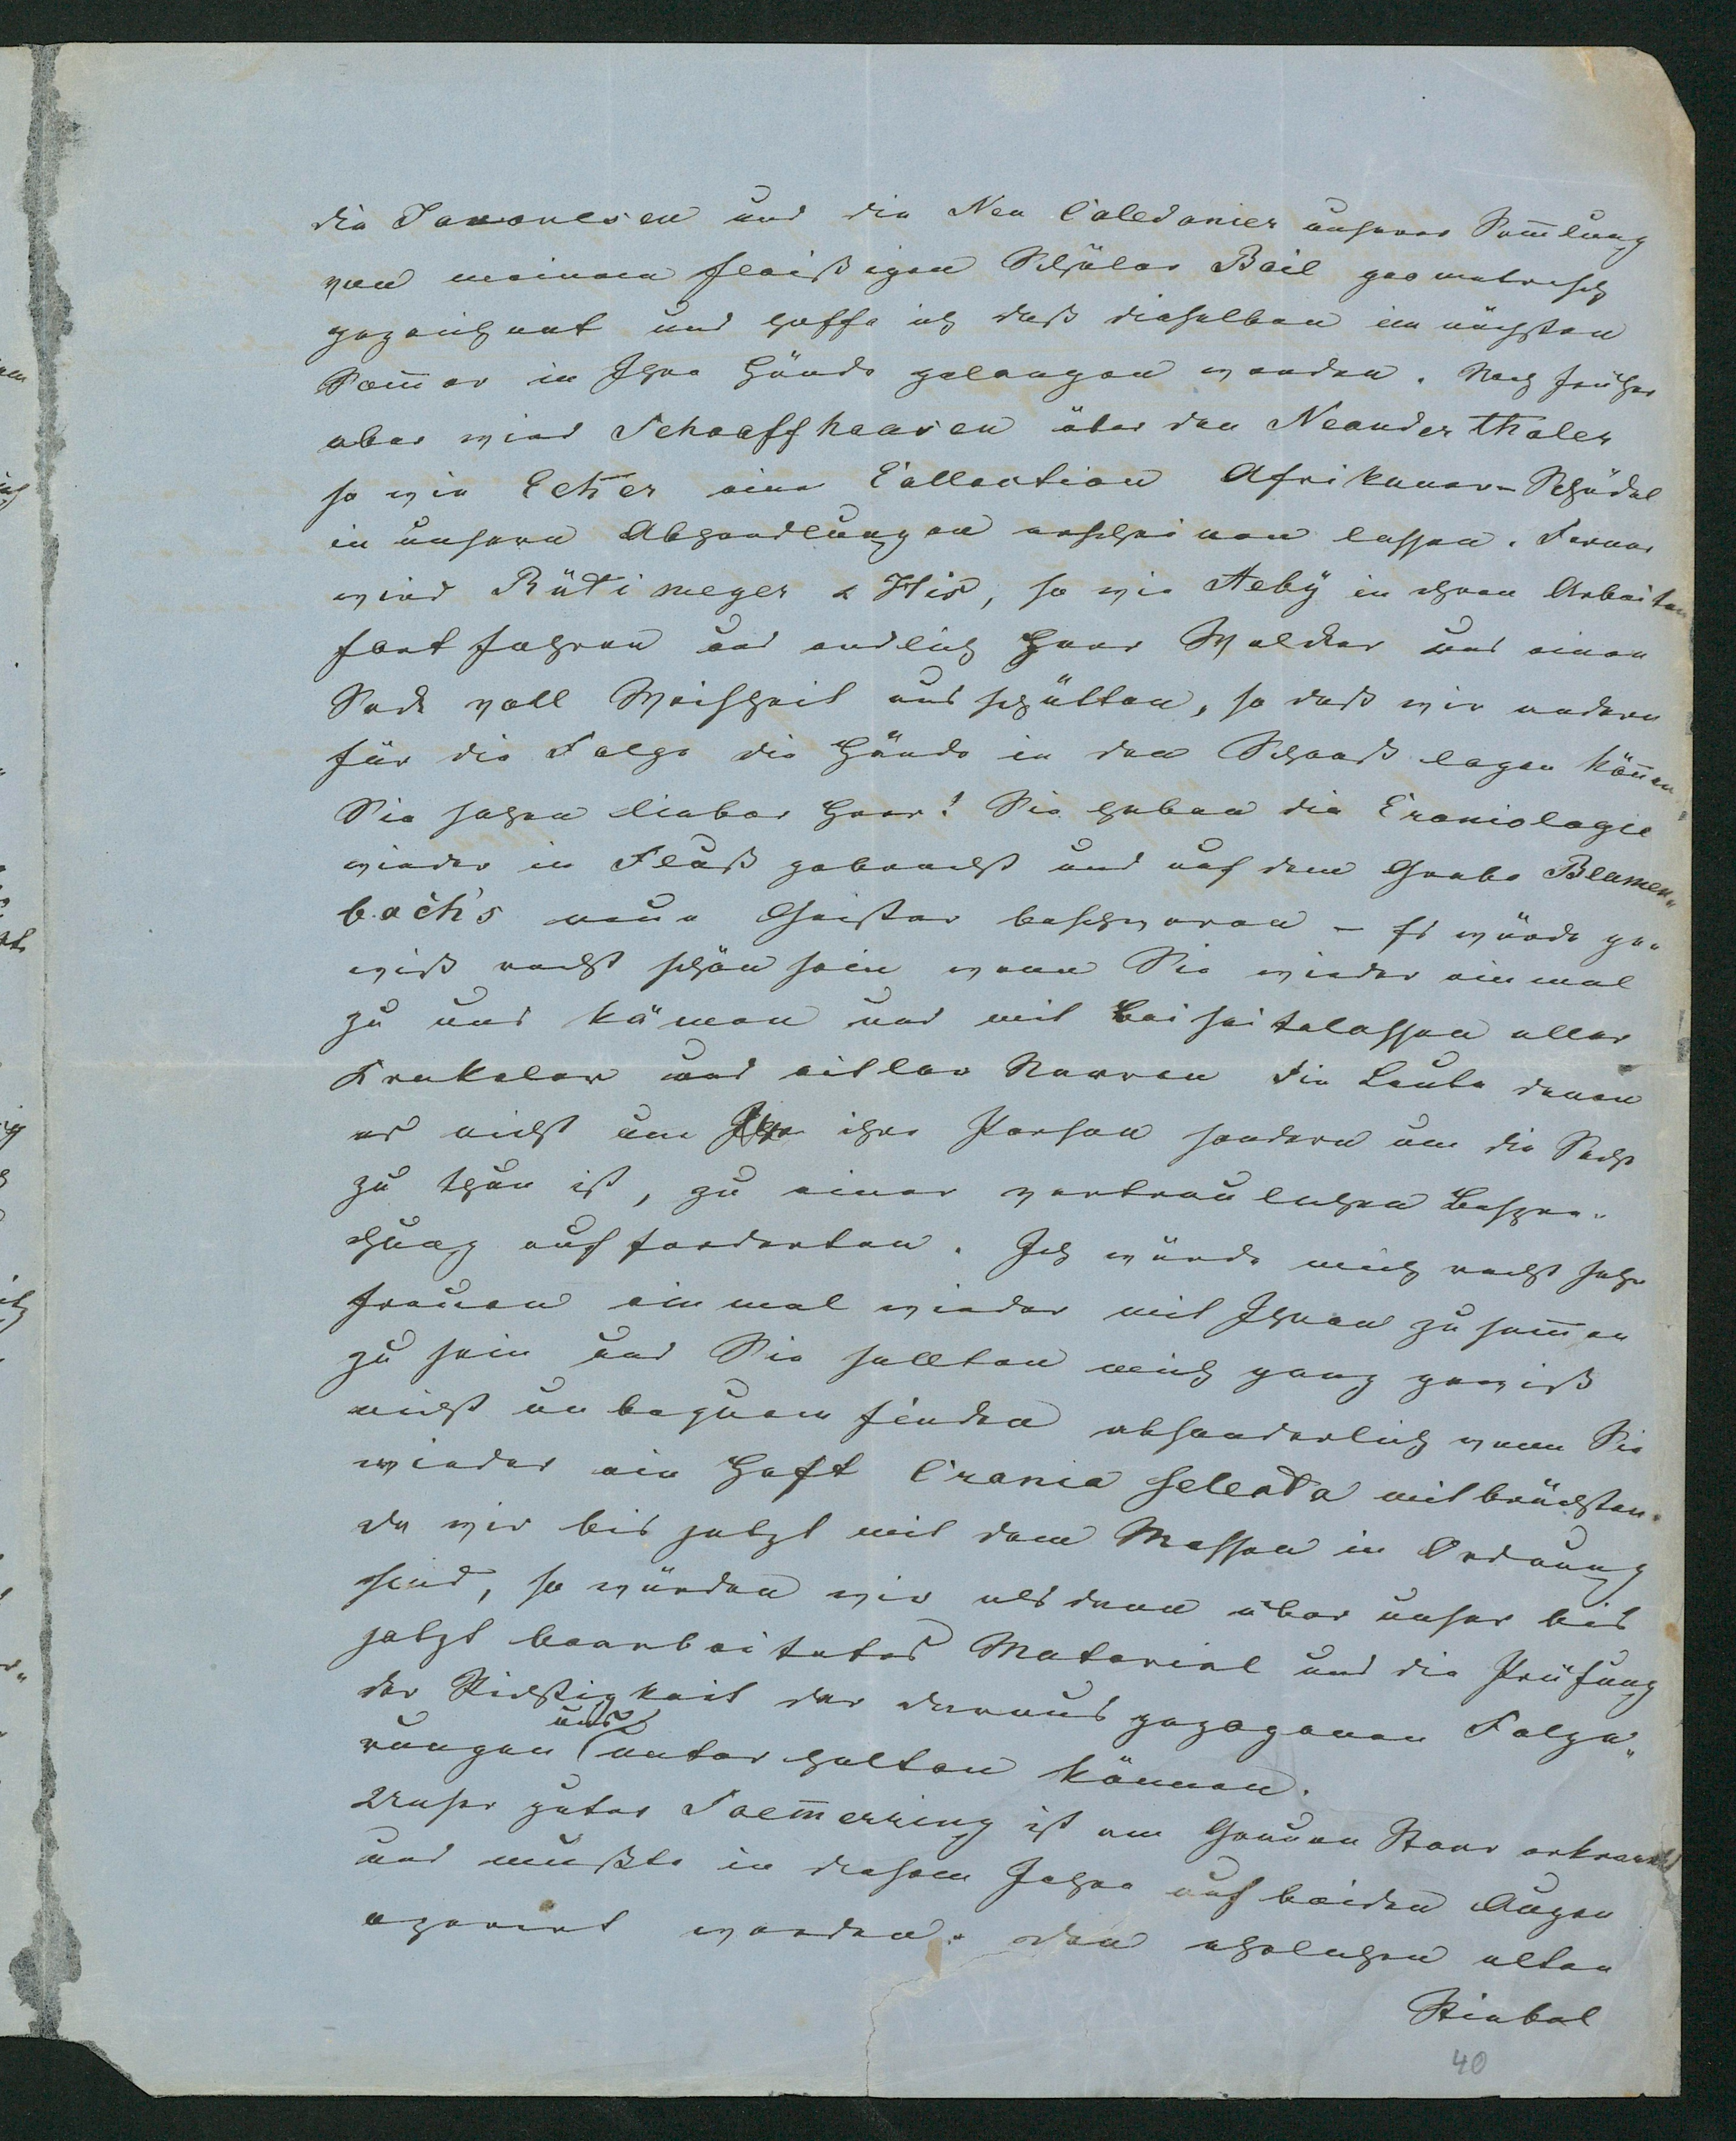 die Javanesen und die Neu Caledonier unserer Sam̄lung
von meinem fleißigen Schüler Beil geometrisch
gezeichnet und hoffe ich daß dieselben im nächsten
Som̄er in Ihre Hände gelangen werden. Noch früher
aber wird Schaaffhausen über den Neanderthaler
so wie Ecker eine Collection Afrikaner-Schädel
in unsern Abhandlungen erscheinen lassen. Ferner
wird Rütimeyer & His, so wie Aeby in ihren Arbeiten
fortfahren und endlich Herr Welcker uns einen
Sack voll Weisheit ausschütten, so daß wir andern
für die Folge die Hände in den Schooß legen kön̄en.
Sie sehen lieber Herr! Sie haben die Craniologie
wieder in Fluß gebracht und auf dem Grabe Blumen„
bach's neue Geister beschworen – Es würde ge„
wiß recht schön sein wenn Sie wieder einmal
zu uns kämen und mit Beiseitelassen aller
Krakeler und eitler Narren die Leute denen
es nicht um ihre Person sondern um die Sache
zu thun ist, zu einer vertraulichen Bespre„
chung aufforderten. Ich würde mich recht sehr
freuen einmal wieder mit Ihnen zusam̄en
zu sein und Sie sollten mich ganz gewiß
nicht unbequem finden absonderlich wenn Sie
wieder ein Heft Crania selecta mitbrächten.
da wir bis jetzt mit dem Messen in Ordnung
sind, so würden wir alsdann über unser bis
jetzt bearbeitetes Material und die Prüfung
der Richtigkeit der daraus gezogenen Folge„
rungen uns unterhalten können.
Unser guter Soem̄erring ist am Grauen Staar erkrankt
und mußte in diesem Jahre auf beiden Augen
operirt werden. den ehrlichen alten
Stiebel
40